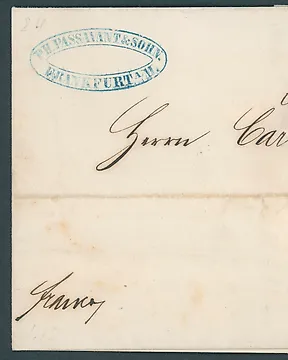 PH. PASSAVANT & SOHN.
FRANKFURT A. M.
Herrn Car
franco